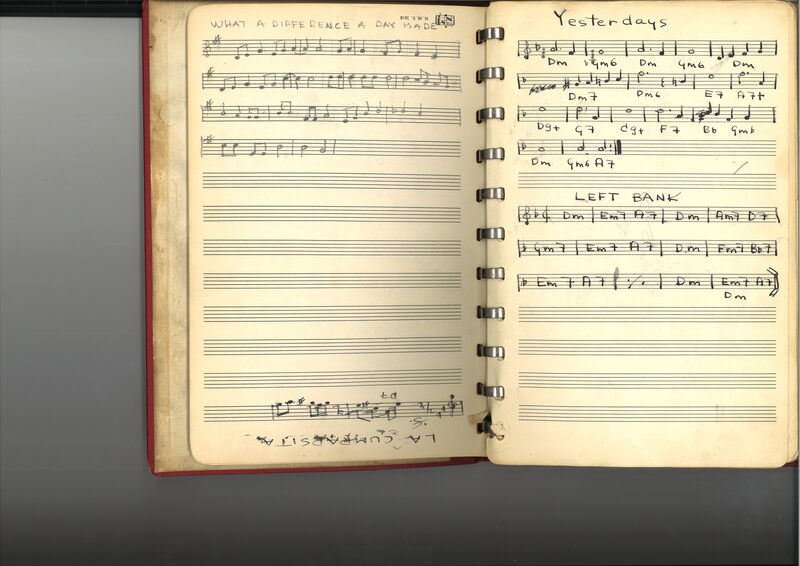 WHAT A DIFFERENCE A DAY MADE
D7
LA CUMPARSITA
Yesterdays
Dm Gm6 Dm Gm6 Dm
Dm7 Dm6 E7 A7+
D9+ G7 C9+ F7 Bb Gm6
Dm Gm6 A7
LEFT BANK
Dm | Em7 A7 | Dm | Am7 D7
Gm7 | Em7 A7 | Dm | Em7 Bb7
Em7 A7 | ٪ | Dm | Em7 A7
Dm